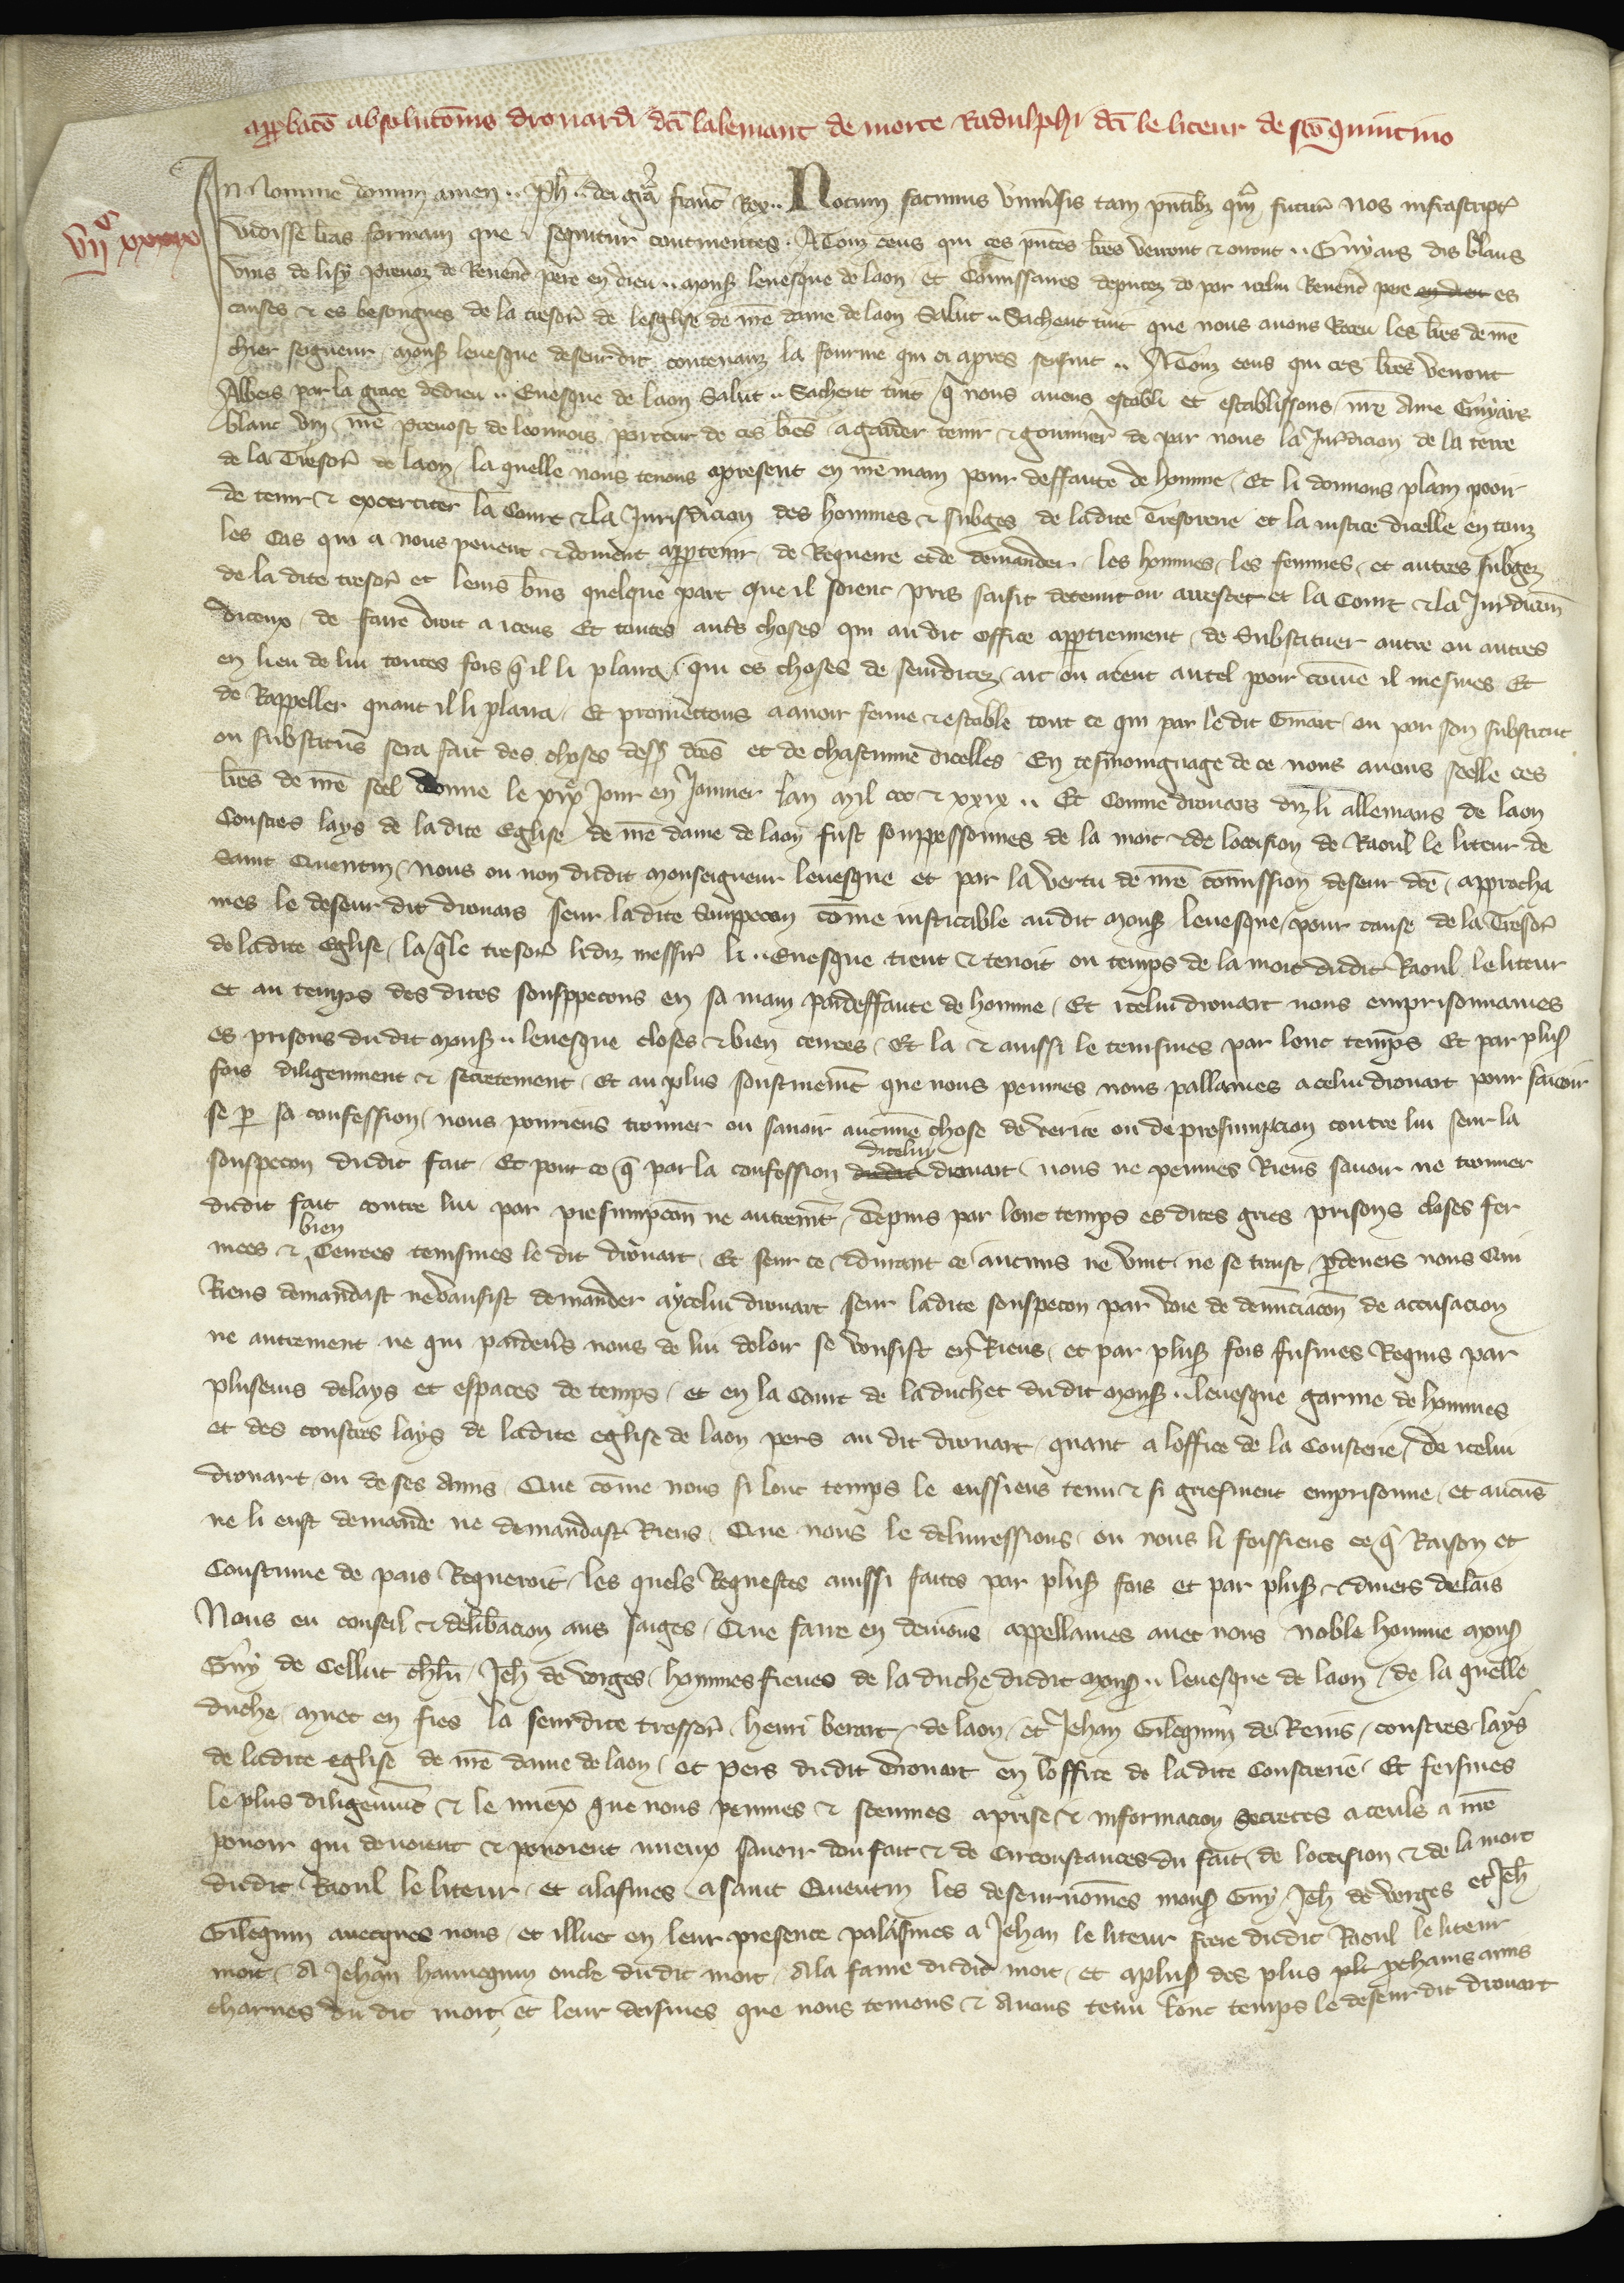 app̃bacõ absolutõnis drouardi dc̃i lalemant de morte Radulphi dc̃i le liteur de sc̃o quintino
vijᶜ xxxix
In nomine domini amen .. Ph̃ .. dei gr̃a franc̃ Rex .. Notum facimus vniu̾sis tam pñtibꝫ qᵃm futur̃ Nos infrascript̃
vidisse lr̃as formam que sequitur continentes . A Touz ceus qui ces pñtes lr̃es verront & orront .. Guyars dis blans
vins de lisy preuoz de Reuerẽt pere en dieu .. monsʳ leuesque de laon / et Com̃issaires deputez de par icelui Reuerẽt pere en dieu es
causes & es besongnes de la tresor̃ de lesglise de nr̃e dame de laon Salut .. Sachent tuit que nous auons Receu les lr̃es de nr̃e
chier seigneur monsʳ leuesque deseur dit contenanz la fourme qui ci apres sensuit .. A Touz ceus qui ces lr̃es verront
Albers par la grace de dieu .. Euesque de laon Salut .. Sachent tuit q̃ nous auens establi et establissons nr̃e ame Guyart
blanc vin nr̃e preuost de leonnois porteur de ces lr̃es a garder tenir & gouuerñ de par nous la Jur̃dicion de la terre
de la Tresor̃ de laon / la quelle nous tenons apresent en nr̃e main pour deffaute de homme / Et li donnons plain pooir
de tenir & excerciter la Court & la Jurisdicion des hommes & subges de ladite Tresorerie et la iustice dicelle en touz
les Cas qui a nous peuent & doiuent app̃tenir / de Requerre et de demander / les hommes / les femmes / et autres subgez
de la dite tresor̃ et leurs bñs quelque part que il soient pris saisit detenut ou arrestet et la Court & la Jur̃dicion
diceux / de faire droit a iceus Et toutes aut̃s choses qui au dit office app̃tiennent / de Substituer autre ou autres
en lieu de lui toutes fois q̃ il li plaira / qui es choses de seurdites / ait ou aient autel pooir com̃e il mesmes Et
de Rappeller quant il li plaira / Et promettons a auoir ferme & estable tout ce qui par le dit Guiart ou par son substitut
ou substitus sera fait des choses dess̃ dc̃es et de chascune dicelles En tesmoingnage de ce nous auons seelle ces
lr̃es de nr̃e seel donne le xixᵉ Jour en Jenuier lan mil ccc & xxix .. Et Comme drouars diz li allemans de laon
Coustres lays de ladite Eglise de nr̃e dame de laon fust souppessonnes de la mort & de loccision de Raoul le liteur de
Saint Quentin / nous ou non dudit monseigneur leuesque et par la vertu de nr̃e com̃ission deseur dc̃e / approcha
mes le deseur dit drouars seur ladite Souppecon com̃e iusticable audit monsʳ leuesque / pour cause de la Tresor̃
de ladite Eglise / la q̃le tresor̃ lediz messir̃ li .. Euesque tient & tenoit ou temps de la mort dudit Raoul le liteur
et au temps des dites souspecons en sa main par deffaute de homme / Et icelui drouart nous emprisonnames
es prisons du dit monsʳ .. leuesque closes & bien cences / Et la & aussi le tenismes par lonc temps Et par plusʳ
fois diligenment & secretement / Et au plus soutiuemẽt que nous peumes nous pallames a celui drouart pour sauoir
se p̱ sa confession / nous pouriens trouuer ou sauoir aucune chose de verite ou de presumpcion contre lui seur la
souspecon dudit fait / Et pour ce q̃ par la confession dudit dicelui drouart / nous ne peumes Riens sauoir ne trouuer
dudit fait contre lui par presumpcion ne autremẽt / Depuis par lonc temps es dites gries prisons closes fer
mees & bien Cenrees tenismes le dit drouart / Et seur ce & durant ce aucuns ne vint ne se traist p̱deuers nous Qui
Riens demandast ne vausist demander a ycelui drouart seur ladite souspecon par voie de denunciacõn de accusacion
ne autrement ne qui par deuers nous de lui doloir se vousist en Riens / et par plusʳ fois fusmes Requis par
pluseurs delays et espaces de temps / et en la Court de la duchet dudit monsʳ .. leuesque garnie de hommes
et des coustres lays de ladite eglise de laon pers au dit drouart quant a loffice de la Cousterie / De icelui
drouart ou de ses Amis / Que com̃e nous si lonc temps le eussiens tenu & si griefment emprisonne / et aucuns
ne li eust demande ne demandast Riens / Que nous le deliuressions / ou nous li feissiens ce q̃ Raison et
Coustume de pais Requeroit / Les quels Requestes aussi faites par plusʳ fois et par plusʳ & diuers delais
Nous eu conseil & delib̃acion aus saiges / Que faire en deuions appellames auec nous noble homme monsʳ
Guy de Cellut ch̃lr̃ / Jeh̃ de vorges / hommes fieues de la duche dudit monsʳ .. leuesque de laon / de la quelle
duche / muet en fies la seurdite tressor̃ / henri berart / de laon / et Jehan Gilequin de Reins / coustres lays
de ladite eglise de nr̃e dame de laon / et pers dudit drouart en loffice de ladite Cousterie / Et feismes
le plus diligenmẽt & le miex que nous peumes & sceumes aprise & informacion secretes a ceuls a nr̃e
pouoir qui deuoient & pouoient mieux sauoir dou fait & de Circonstances du fait / de loccision & de la mort
dudit Raoul le liteur / et alasmes a saint Quentin les deseur nom̃es monsʳ Guy / Jeh̃ de vorges et Jeh̃
Gilequin auecques nous / et illuec en leur presence palasmes a Jehan le liteur frere dudit Raoul le liteur
mort / A Jehan hannequin oncle dudit mort / A la fame dudit mort / et a plusʳ des plus pchains amis
charnes du dit mort et leur deismes que nous teniens & Auons tenu lonc temps le deseur dit drouart